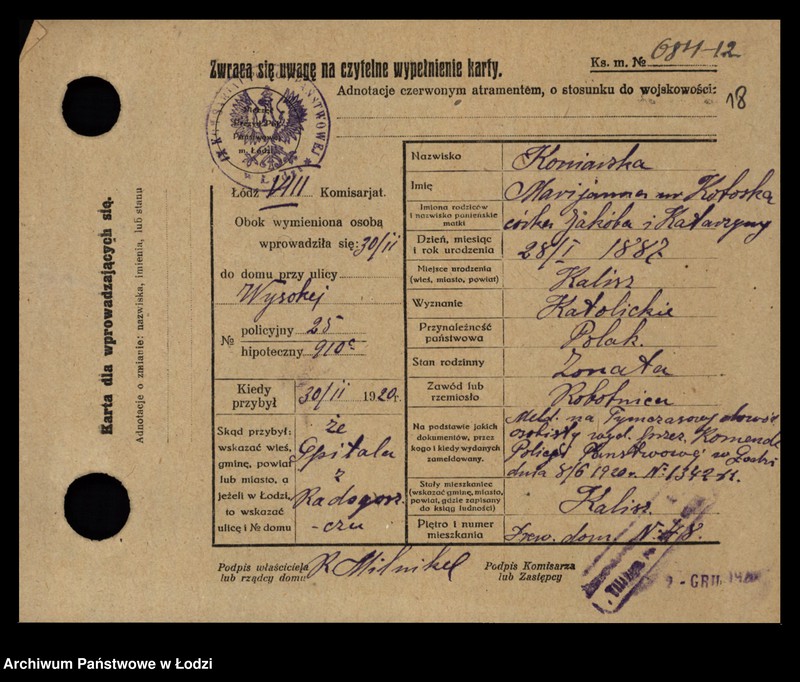 Zwraca się uwagę na czytelne wypełnienie karty.
Ks. m. № 684-12
Adnotacje czerwonym atramentem, o stosunku do wojskowości:
18
Karta dla wprowadzających się.
Adnotacje o zmianie: nazwiska, imienia, lub stanu
Łódź VIII Komisarjat.
Obok wymieniona osobą
wprowadziła się: 30/II
do domu przy ulicy
Wysokej
№ policyjny 25
hipoteczny 910c
Kiedy przybył 30/II 1920 r.
Skąd przybył:
wskazać wieś,
gminę, powiat
lub miasto, a
jeżeli w Łodzi,
to wskazać
ulicę i № domu
że
Szpitala
z
Radogosz-
-czu
Nazwisko
Imię Marijanna
Imiona rodziców
i nazwisko panieńskie
matki
córka Jakóba i Katarzyny
Dzień, miesiąc
i rok urodzenia
28/I 1887
Miejsce urodzenia
(wieś, miasto, powiat)
Kalisz
Wyznanie Katolickie
Przynależność
państwowa
Polak.
Stan rodzinny Zonata
Zawód lub
rzemiosło
Robotnica
Na podstawie jakich
dokumentów, przez
kogo i kiedy wydanych
zameldowany.
Meld. na Tymczasowy dowód
osobisty wyd. przez. Komendę
Policji Państwowej w Łodzi
dnia 8/6 1920 r. №
Stały mieszkaniec
(wskazać gminę, miasto,
powiat, gdzie zapisany
do ksiąg ludności)
Kalisz
Piętro i numer
mieszkania
dom № 8.
Podpis właściciela
lub rządcy domu
R Milnikel
Podpis Komisarza
lub Zastępcy
9 - GRU. 1920
Archiwum Państwowe w Łodzi